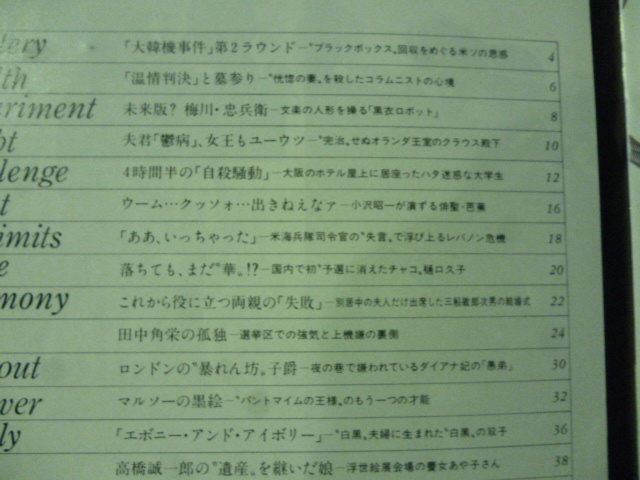 lery 「大韓機事件」第2ラウンド—〝ブラックボックス〟回収をめぐる米ソの思惑 4
lth 「温情判決」と墓参り—〝恍惚の妻〟を殺したコラムニストの心境 6
eriment 未来版? 梅川・忠兵衛—文楽の人形を操る「黒衣ロボット」 8
bt 夫君「鬱病」、女王もユーウツ—〝完治〟せぬオランダ王室のクラウス殿下 10
llenge 4時間半の「自殺騒動」—大阪のホテル屋上に居座ったハタ迷惑な大学生 12
t ウーム…クッソォ…出きねえなァ—小沢昭一が演ずる俳聖・芭蕉 16
imits 「ああ、いっちゃった」—米海兵隊司令官の〝失言〟で浮び上るレバノン危機 18
e 落ちても、まだ〝華〟!?—国内で初〝予選に消えたチャコ〟樋口久子 20
mony これから役に立つ両親の「失敗」—別居中の夫人だけ出席した三船敏郎次男の結婚式 22
田中角栄の孤独—選挙区での強気と上機嫌の裏側 24
out ロンドンの〝暴れん坊〟子爵—夜の巷で嫌われているダイアナ妃の「愚弟」 30
ver マルソーの墨絵—〝パントマイムの王様〟のもう一つの才能 32
ly 「エボニー・アンド・アイボリー」—〝白黒〟夫婦に生まれた〝白黒〟の双子 36
高橋誠一郎の〝遺産〟を継いだ娘—浮世絵展会場の養女あや子さん 38